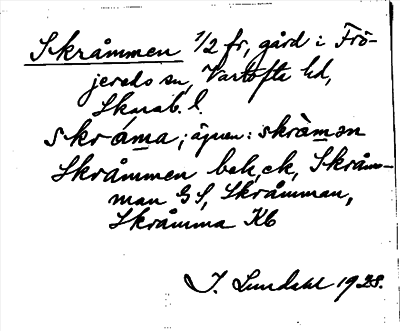 Skråmmen 1/2 fr, gård i Frö-
jereds sn, Vartofta hd,
Skarab. l.
skråma; även: skråmən
Skråmmen bek, ek, Skråm-
man GS, Skråmman,
Skråmma Kb
I. Lundahl 1928.